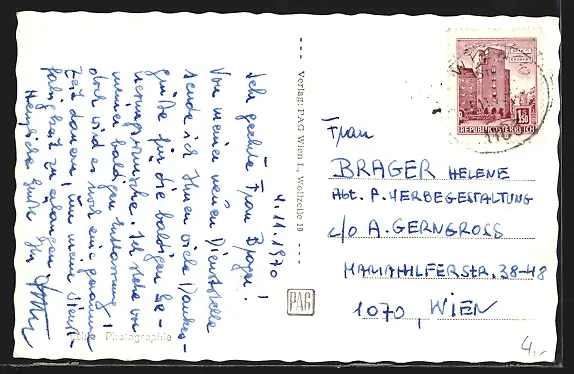 4.11.1970
Ich geehrte Frau Brager!
Von meiner neuen Dienststelle
sende ich Ihnen viele Dankes-
grüße für die baldigen Ge-
nesungswünsche. Ich stehe vor
meiner baldigen Entlassung,
doch wird es noch eine geraume
Zeit dauern, um meine Dienst-
fähigkeit zu erlangen.
Herzliche Grüße Ihr
Photographie
Verlag: PAG Wien I., Wollzeile 19
PAG
REPUBLIK ÖSTERREICH
1.50
Frau
BRAGER HELENE
Abt. F. WERBEGESTALTUNG
c/o A. GERNGROSS
MARIAHILFERSTR. 38-48
1070, WIEN
4,-